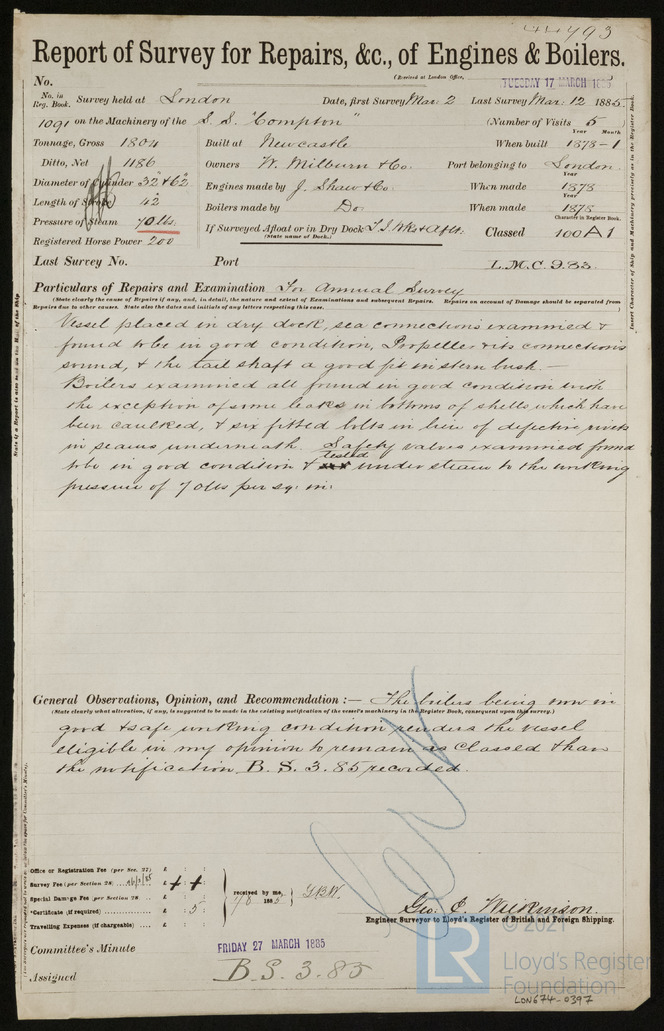 44793
Report of Survey for Repairs, &c., of Engines & Boilers.
No. (Received at London Office, TUESDAY 17 MARCH 1885
No. in Reg. Book. Survey held at London Date, first Survey Mar. 2 Last Survey Mar. 12 1885
1091 on the Machinery of the S.S. "Compton" (Number of Visits 5)
Tonnage, Gross 1804 Built at Newcastle When built Year 1873 - Month 1
Ditto, Net 1186 Owners W. Milburn & Co. Port belonging to London
Diameter of Cylinder 32" & 62" Engines made by J. Shaw & Co. When made Year 1873
Length of Stroke 42 Boilers made by Do. When made Year 1873
Pressure of Steam 70 lbs. If Surveyed Afloat or in Dry Dock Classed Character in Register Book. 100 A 1
(State name of Dock.)
Registered Horse Power 200
Last Survey No. Port L.M.C. 9.83
Particulars of Repairs and Examination For Annual Survey
(State clearly the cause of Repairs if any, and, in detail, the nature and extent of Examinations and subsequent Repairs. Repairs on account of Damage should be separated from
Repairs due to other causes. State also the dates and initials of any letters respecting this case.)
Vessel placed in dry dock, sea connections examined &
found to be in good condition, Propeller & its connections
sound, & the tail shaft a good fit in stern bush. —
Boilers examined all found in good condition with
the exception of some leaks in bottoms of shells, which have
been caulked, & six fitted bolts in lieu of defective rivets
in seams underneath. Safety valves examined found
to be in good condition & tested under steam to the working
pressure of 70 lbs per sq: in:
General Observations, Opinion, and Recommendation :— The boilers being now in
(State clearly what alteration, if any, is suggested to be made in the existing notification of the vessel's machinery in the Register Book, consequent upon this survey.)
good & safe working condition renders the vessel
eligible in my opinion to remain as Classed & have
the notification B.S. 3.85 recorded.
Office or Registration Fee (per Sec. 27) £ : :
Survey Fee (per Section 28) £
Special Damage Fee (per Section 28 £ : :
*Certificate (if required) £ : 5 :
Travelling Expenses (if chargeable) £ : :
received by me,
Geo. C. Wilkinson.
Engineer Surveyor to Lloyd's Register of British and Foreign Shipping.
Committee's Minute FRIDAY 27 MARCH 1885
Assigned B.S. 3.85
© 2021
LR Lloyd's Register
Foundation
LON674-0397